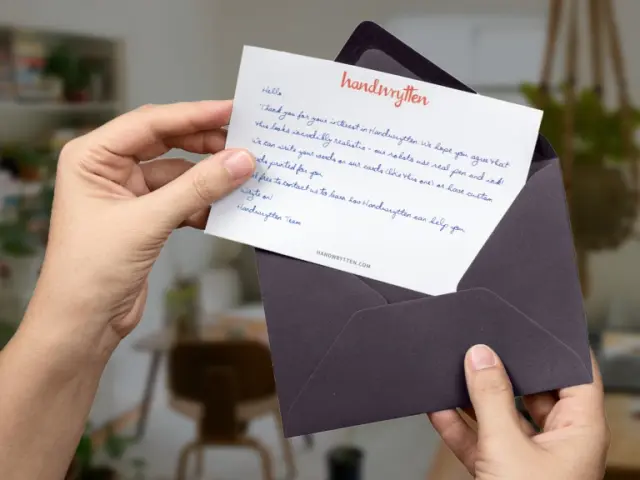 handwrytten
Hello,
Thank you for your interest in Handwrytten. We hope you agree that
this looks incredibly realistic - our robots use real pen and ink!
We can write your words on our cards (like this one) or have custom
printed for you.
free to contact us to learn how Handwrytten can help you.
on!
Handwrytten Team
HANDWRYTTEN.COM